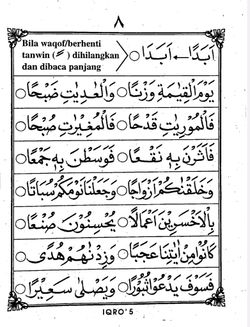 ٨
Bila waqof/berhenti
tanwin ( ـً ) dihilangkan
dan dibaca panjang
اَبَدًا ← اَبَدَا
يَوْمَ الْقِيٰمَةِ وَزْنًا ○ وَالْعٰدِيٰتِ ضَبْحًا
فَالْمُوْرِيٰتِ قَدْحًا ○ فَالْمُغِيْرٰتِ صُبْحًا
فَاَثَرْنَ بِهٖ نَقْعًا ○ فَوَسَطْنَ بِهٖ جَمْعًا
وَخَلَقْنٰكُمْ اَزْوَاجًا ○ وَجَعَلْنَا نَوْمَكُمْ سُبَاتًا ○
بِالْاَخْسَرِيْنَ اَعْمَالًا ○ يُحْسِنُوْنَ صُنْعًا ○
كَانُوْا مِنْ اٰيٰتِنَا عَجَبًا ○ وَزِدْنٰهُمْ هُدًى ○
فَسَوْفَ يَدْعُوْا ثُبُوْرًا ○ وَيَصْلٰى سَعِيْرًا ○
IQRO' 5